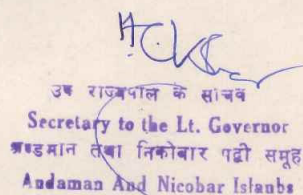 उप राज्यपाल के सचिव
Secretary to the Lt. Governor
अण्डमान तथा निकोबार द्वीप समूह
Andaman And Nicobar Islands